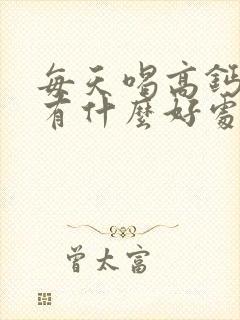 每天喝高鈣
有什麼好處
曾太富